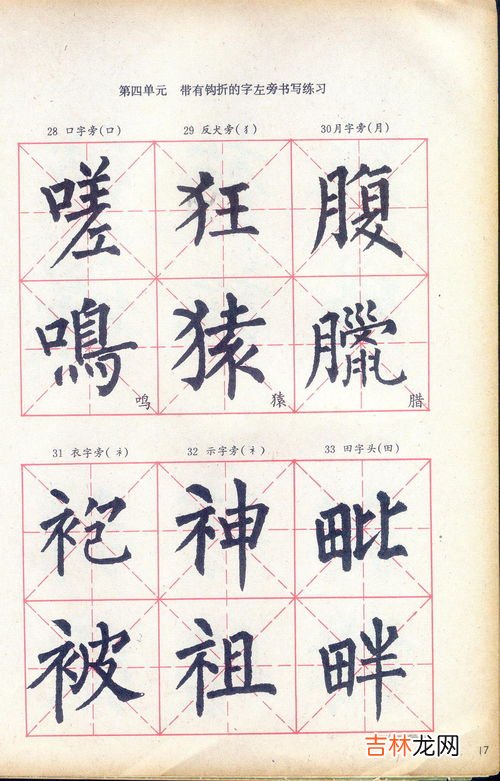 第四单元 带有钩折的字左旁书写练习
28 口字旁(口) 29 反犬旁(犭) 30月字旁(月)
嗟 狂 腹
鳴 猿 臘
鸣 猿 腊
31 衣字旁(衤) 32 示字旁(礻) 33 田字头(田)
袍 神 毗
被 祖 畔
吉林龙网
17